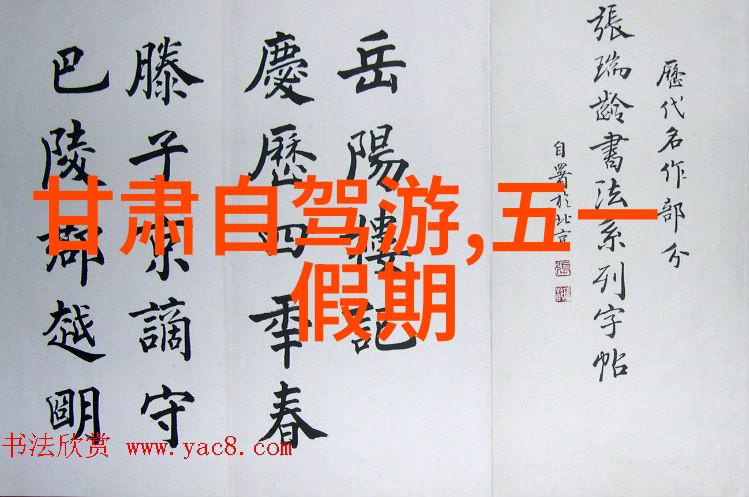 歷代名作部分
張瑞齡書法系列字帖
自署於北京
岳陽樓記
慶歷四年春
滕子京謫守
巴陵郡越明
甘肃自驾游,五一
假期
书法欣赏 www.yac8.com